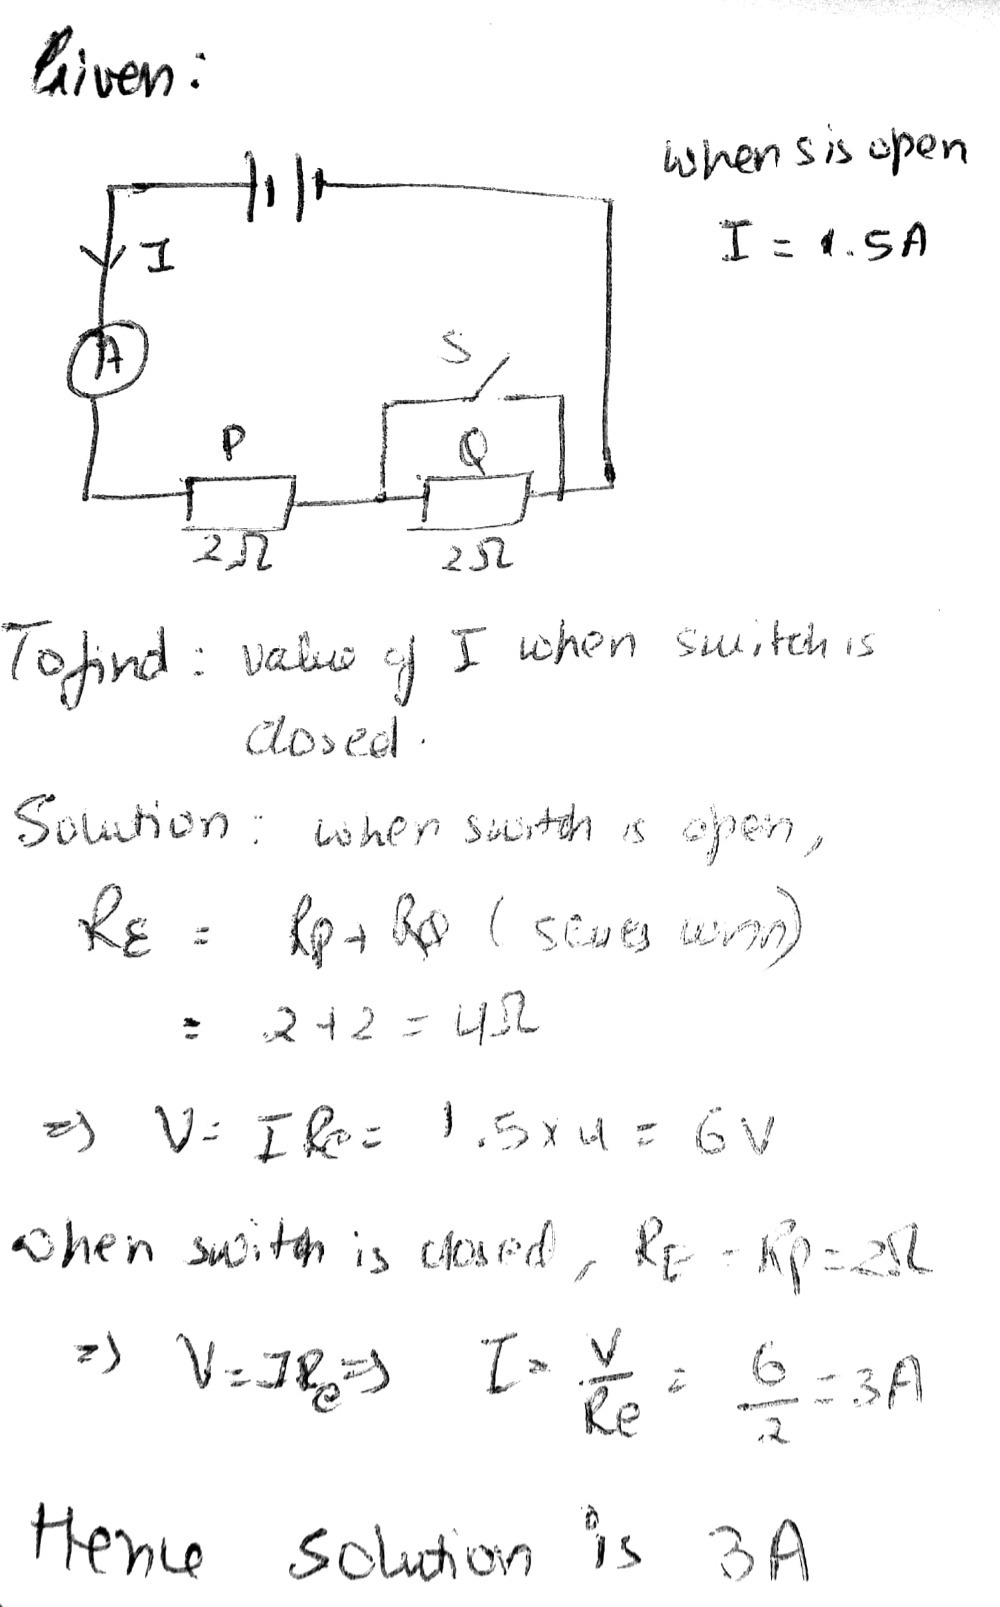 Given:
when s is open
I = 1.5A
I
A
S
P
Q
2Ω
2Ω
To find : value of I when switch is
closed.
Solution : when switch is open,
RE = RP + RQ ( series conn)
= 2+2 = 4Ω
=> V = I Re = 1.5 x 4 = 6V
when switch is closed, RE = RP = 2Ω
=> V = IRe => I = V/Re = 6/2 = 3A
Hence solution is 3A